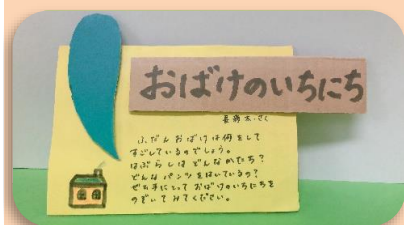 おばけのいちにち
長新太・さく
ふだんおばけは何をして
すごしているのでしょう。
はぶらしはどんなかたち？
どんなパンツをはいているの？
ぜひ手にとっておばけのいちにちを
のぞいてみてください。